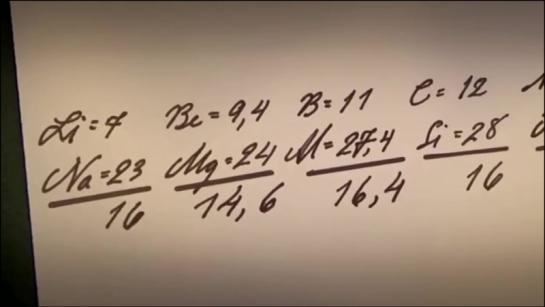 Li=7 Be=9,4 B=11 C=12
Na=23 Mg=24 Al=27,4 Si=28
16 14,6 16,4 16